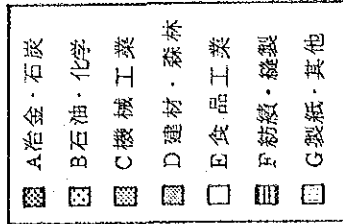 A冶金・石炭
B石油・化学
C機械工業
D建材・森林
E食品工業
F紡績・縫製
G製紙・其他